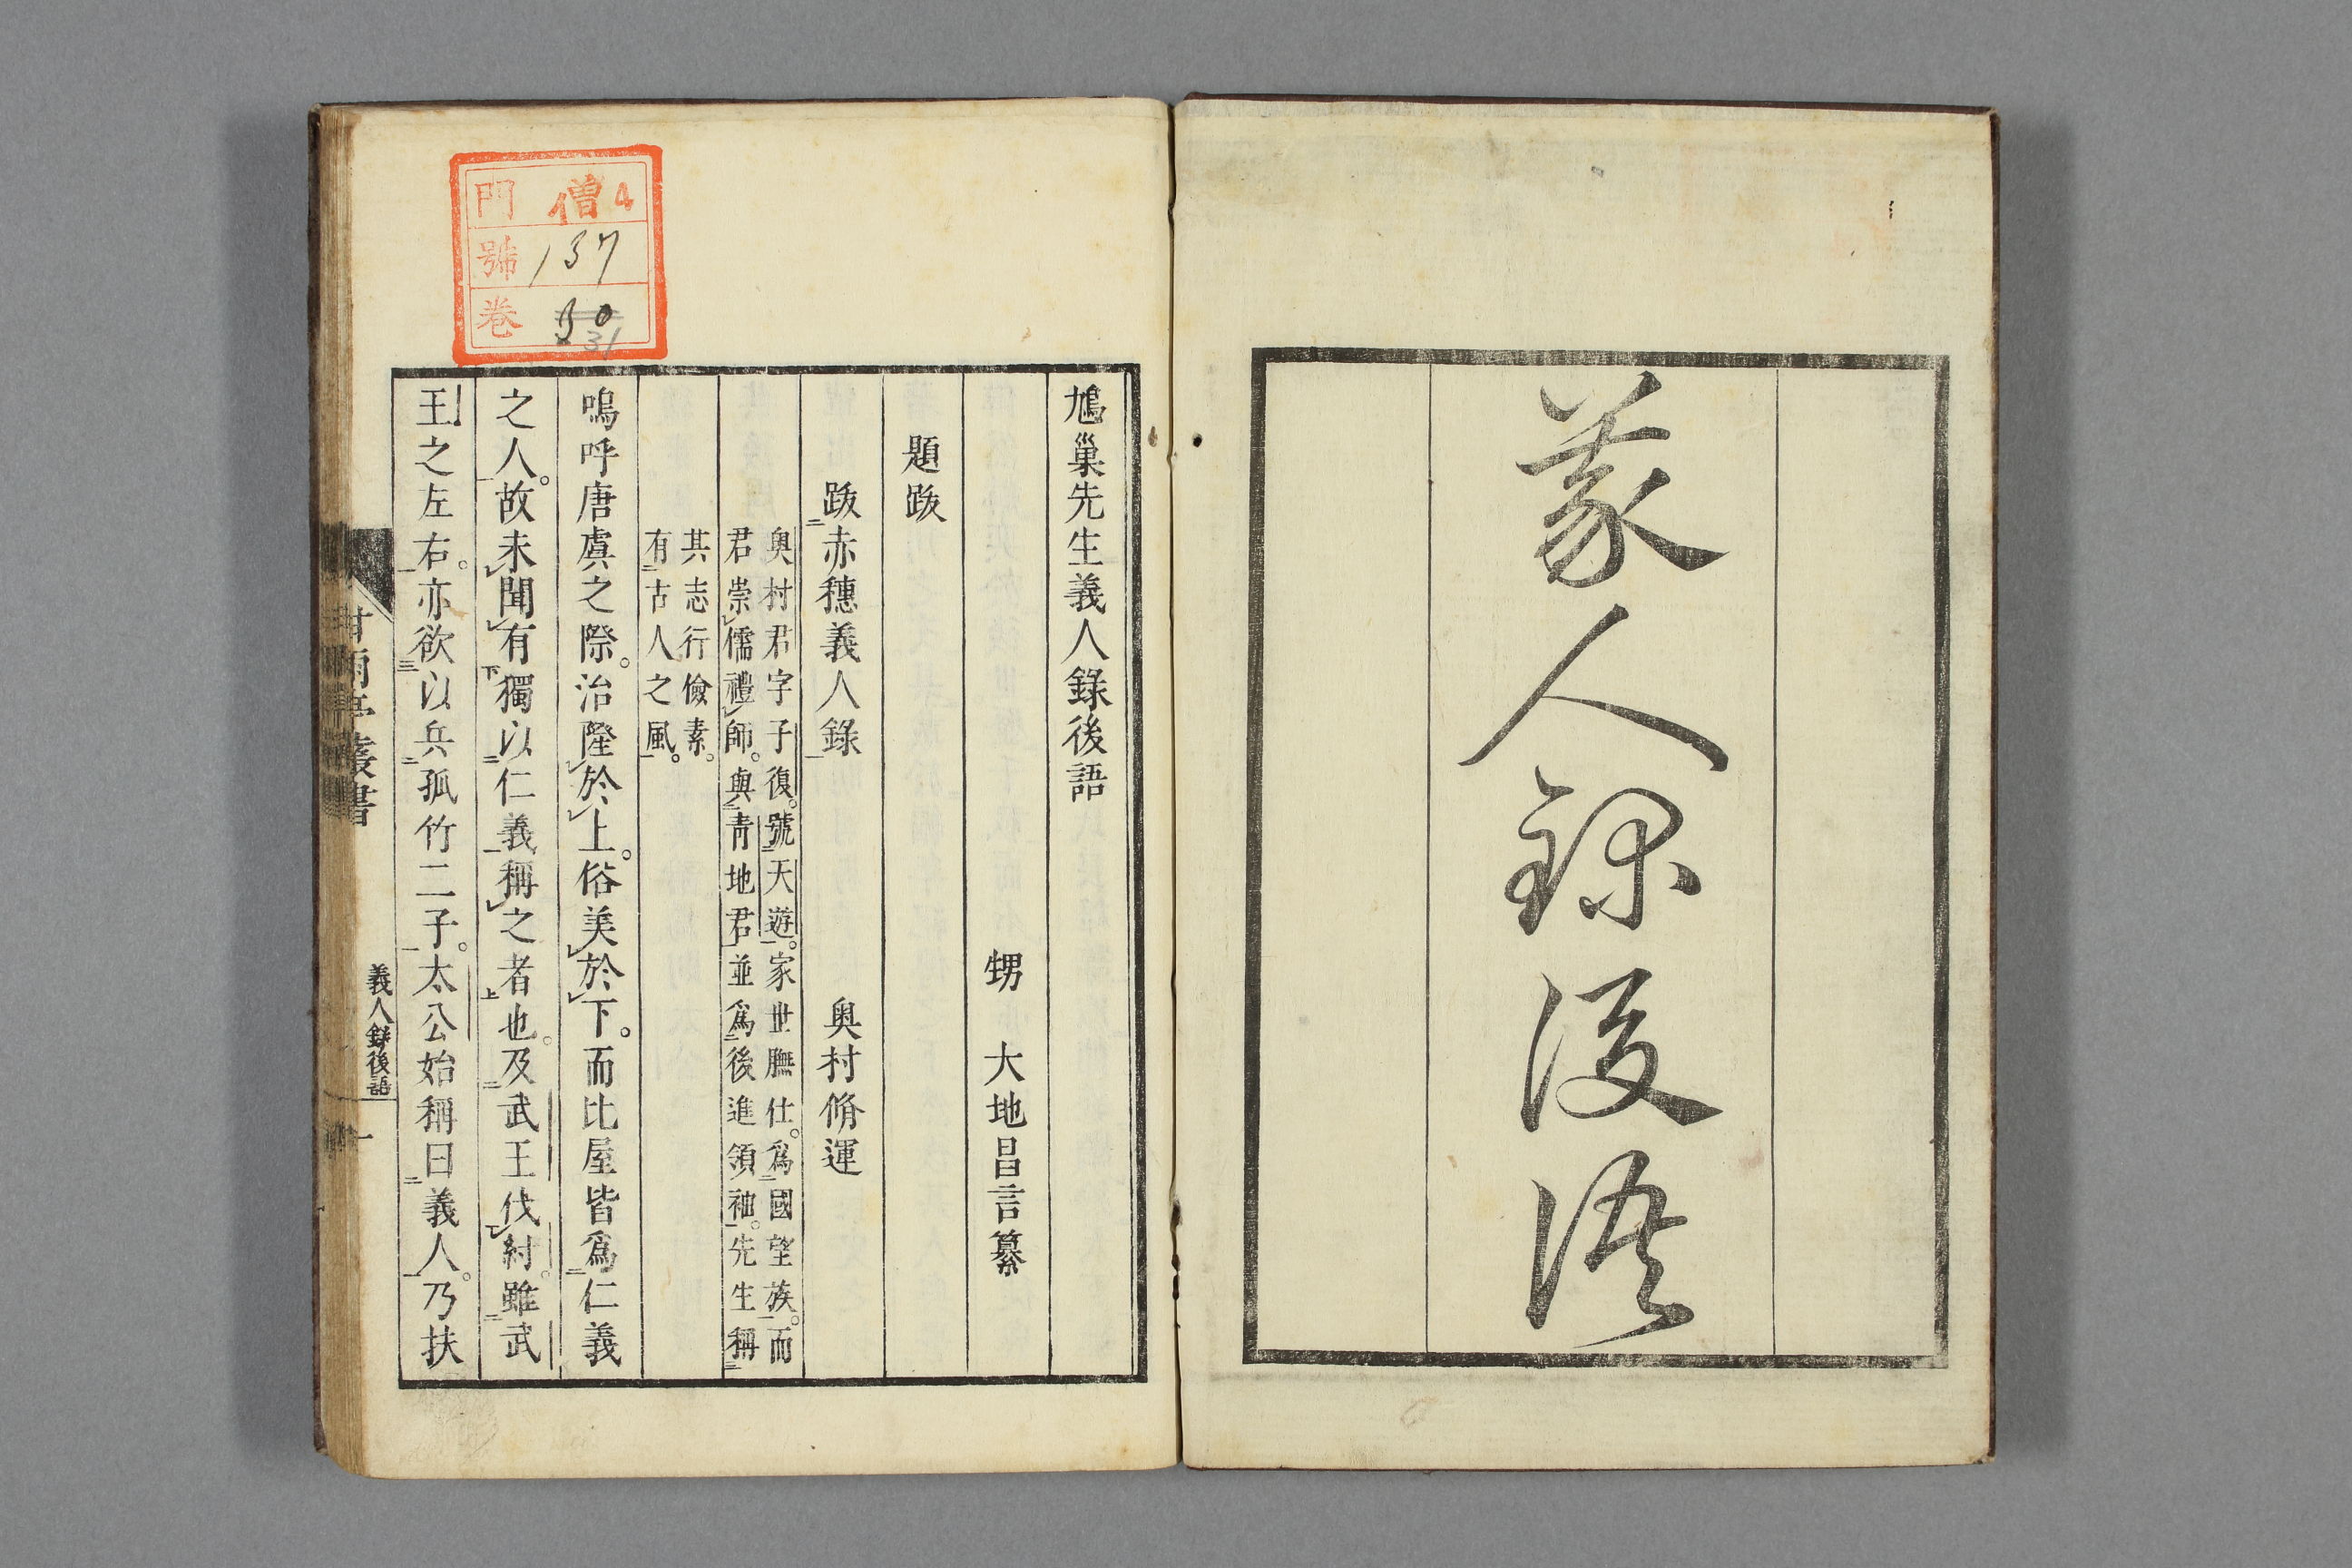 義人録後語
鳩巢先生義人錄後語
甥　大地昌言纂
題跋
跋赤穗義人錄　奥村脩運
奥村君字子復。號天遊。家世膴仕。爲國望族。而
君崇儒禮師。與靑地君並爲後進領袖。先生稱
其志行儉素。
有古人之風。
嗚呼唐虞之際。治隆於上。俗美於下。而比屋皆爲仁義
之人。故未聞有獨以仁義稱之者也。及武王伐紂。雖武
王之左右。亦欲以兵孤竹二子。太公始稱曰義人。乃扶
甘雨亭叢書
義人錄後語
一
門 僧4
號 137
卷 30
31